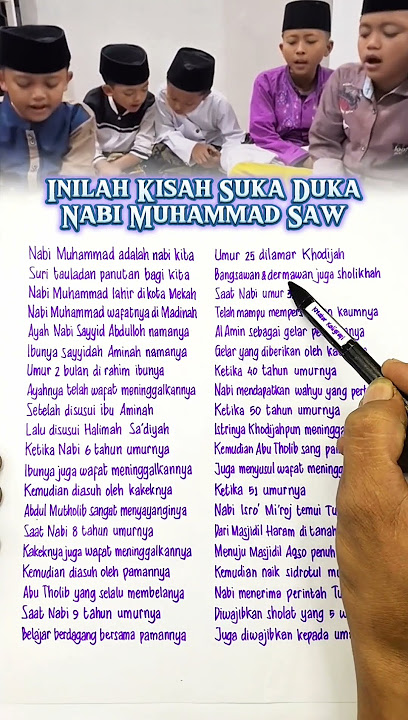 INILAH KISAH SUKA DUKA
NABI MUHAMMAD SAW
Nabi Muhammad adalah nabi kita
Suri tauladan panutan bagi kita
Nabi Muhammad lahir di kota Mekah
Nabi Muhammad wafatnya di Madinah
Ayah Nabi Sayyid Abdulloh namanya
Ibunya Sayyidah Aminah namanya
Umur 2 bulan di rahim ibunya
Ayahnya telah wafat meninggalkannya
Setelah disusui ibu Aminah
Lalu disusui Halimah Sa'diyah
Ketika Nabi 6 tahun umurnya
Ibunya juga wafat meninggalkannya
Kemudian diasuh oleh kakeknya
Abdul Mutholib sangat menyayanginya
Saat Nabi 8 tahun umurnya
Kakeknya juga wafat meninggalkannya
Kemudian diasuh oleh pamannya
Abu Tholib yang selalu membelanya
Saat Nabi 9 tahun umurnya
Belajar berdagang bersama pamannya
Umur 25 dilamar Khodijah
Bangsawan & dermawan juga sholikhah
Saat Nabi umur
Telah mampu kaumnya
Al Amin sebagai gelar
Gelar yang diberikan oleh
Ketika 40 tahun umurnya
Nabi mendapatkan wahyu yang
Ketika 50 tahun umurnya
Istrinya Khodijahpun
Kemudian Abu Tholib sang
Juga menyusul wafat
Ketika 51 umurnya
Nabi Isro' Mi'roj temui
Dari Masjidil Haram di
Menuju Masjidil Aqso penuh
Kemudian naik sidrotul
Nabi menerima perintah
Diwajibkan sholat yang 5
Juga diwajibkan kepada